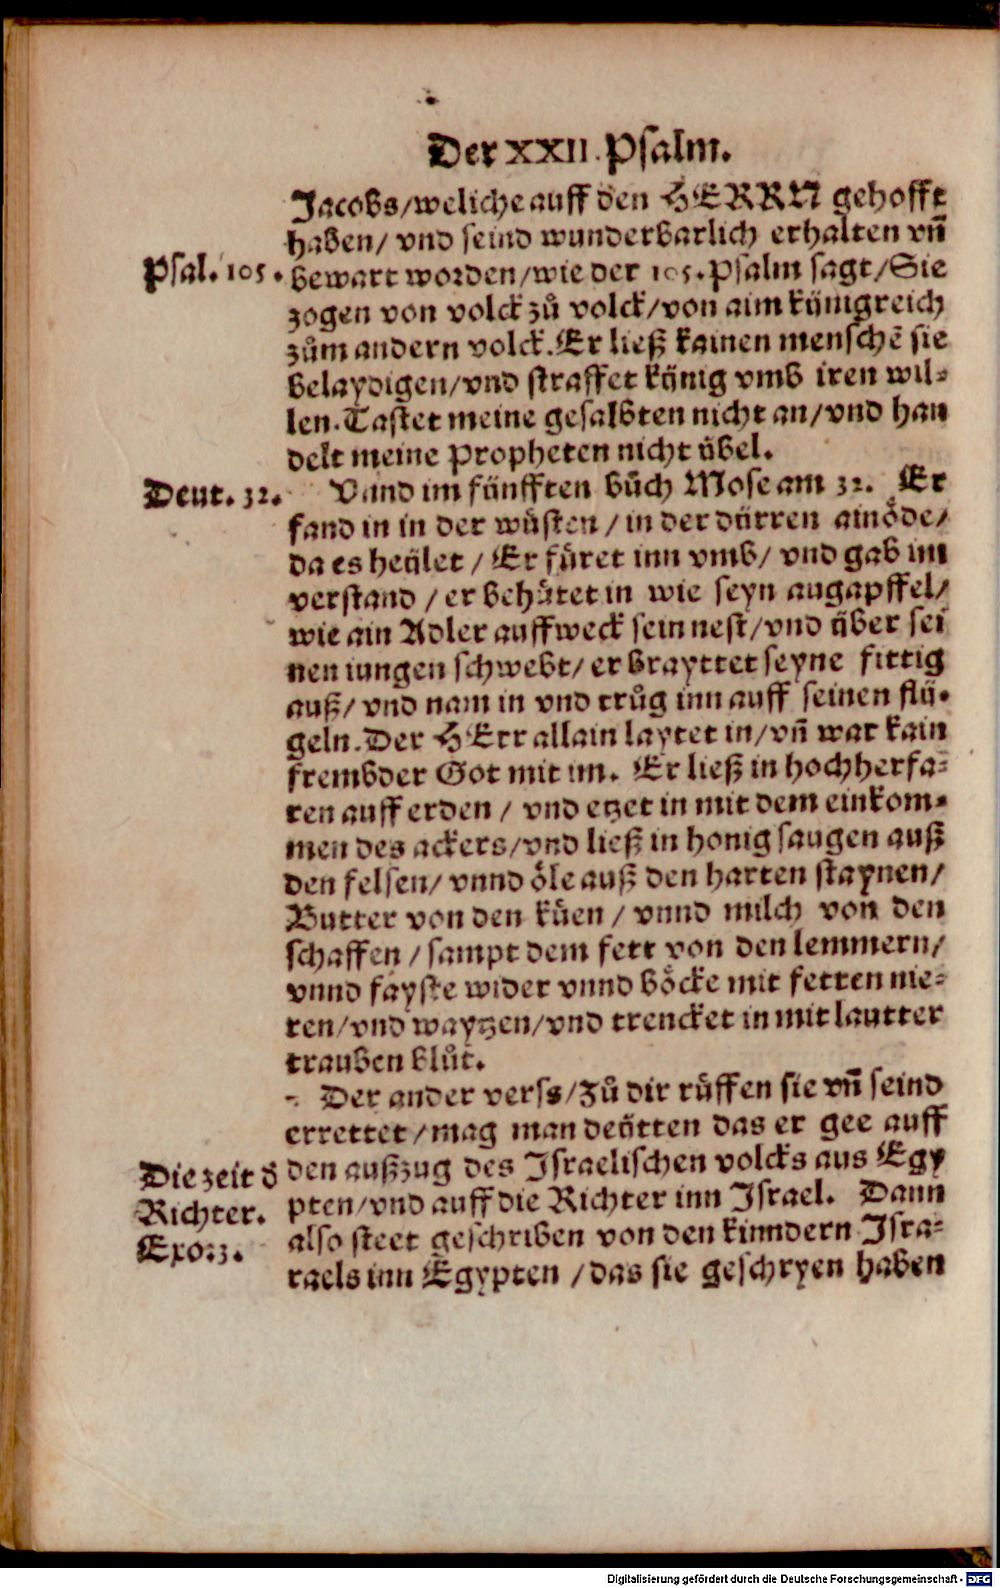 Der XXII. Psalm.
Jacobs/weliche auff den HERRN gehofft
haben/ vnd seind wunderbarlich erhalten vñ
Psal. 105.
bewart worden/wie der 105. Psalm sagt/Sie
zogen von volck zů volck/von aim künigreich
zům andern volck. Er ließ kainen menschẽ sie
belaydigen/vnd straffet künig vmb iren wil⸗
len. Tastet meine gesalbten nicht an/vnd han
delt meine Propheten nicht übel.
Deut. 32.
Vnnd im fünfften bůch Mose am 32. Er
fand in in der wüsten / in der dürren ainöde/
da es heület / Er füret inn vmb/ vnd gab im
verstand / er behütet in wie seyn augapffel/
wie ain Adler auffweck sein nest/vnd über sei
nen iungen schwebt/ er brayttet seyne fittig
auß/ vnd nam in vnd trůg inn auff seinen flü⸗
geln. Der HErr allain laytet in/vñ war kain
frembder Got mit im. Er ließ in hochherfa⸗
ren auff erden / vnd etzet in mit dem einkom⸗
men des ackers/vnd ließ in honig saugen auß
den felsen/ vnnd öle auß den harten staynen/
Butter von den küen / vnnd milch von den
schaffen / sampt dem fett von den lemmern/
vnnd fayste wider vnnd böcke mit fetten nie⸗
ren/vnd waytzen/vnd trencket in mit lautter
trauben blůt.
Der ander verss/zů dir rüffen sie vñ seind
errettet/mag man deütten das er gee auff
Die zeit d̕
den außzug des Israelischen volcks aus Egy
Richter.
pten/vnd auff die Richter inn Israel. Dann
Exo. 3.
also steet geschriben von den kinndern Isra⸗
raels inn Egypten /das sie geschryen haben
Digitalisierung gefördert durch die Deutsche Forschungsgemeinschaft - DFG